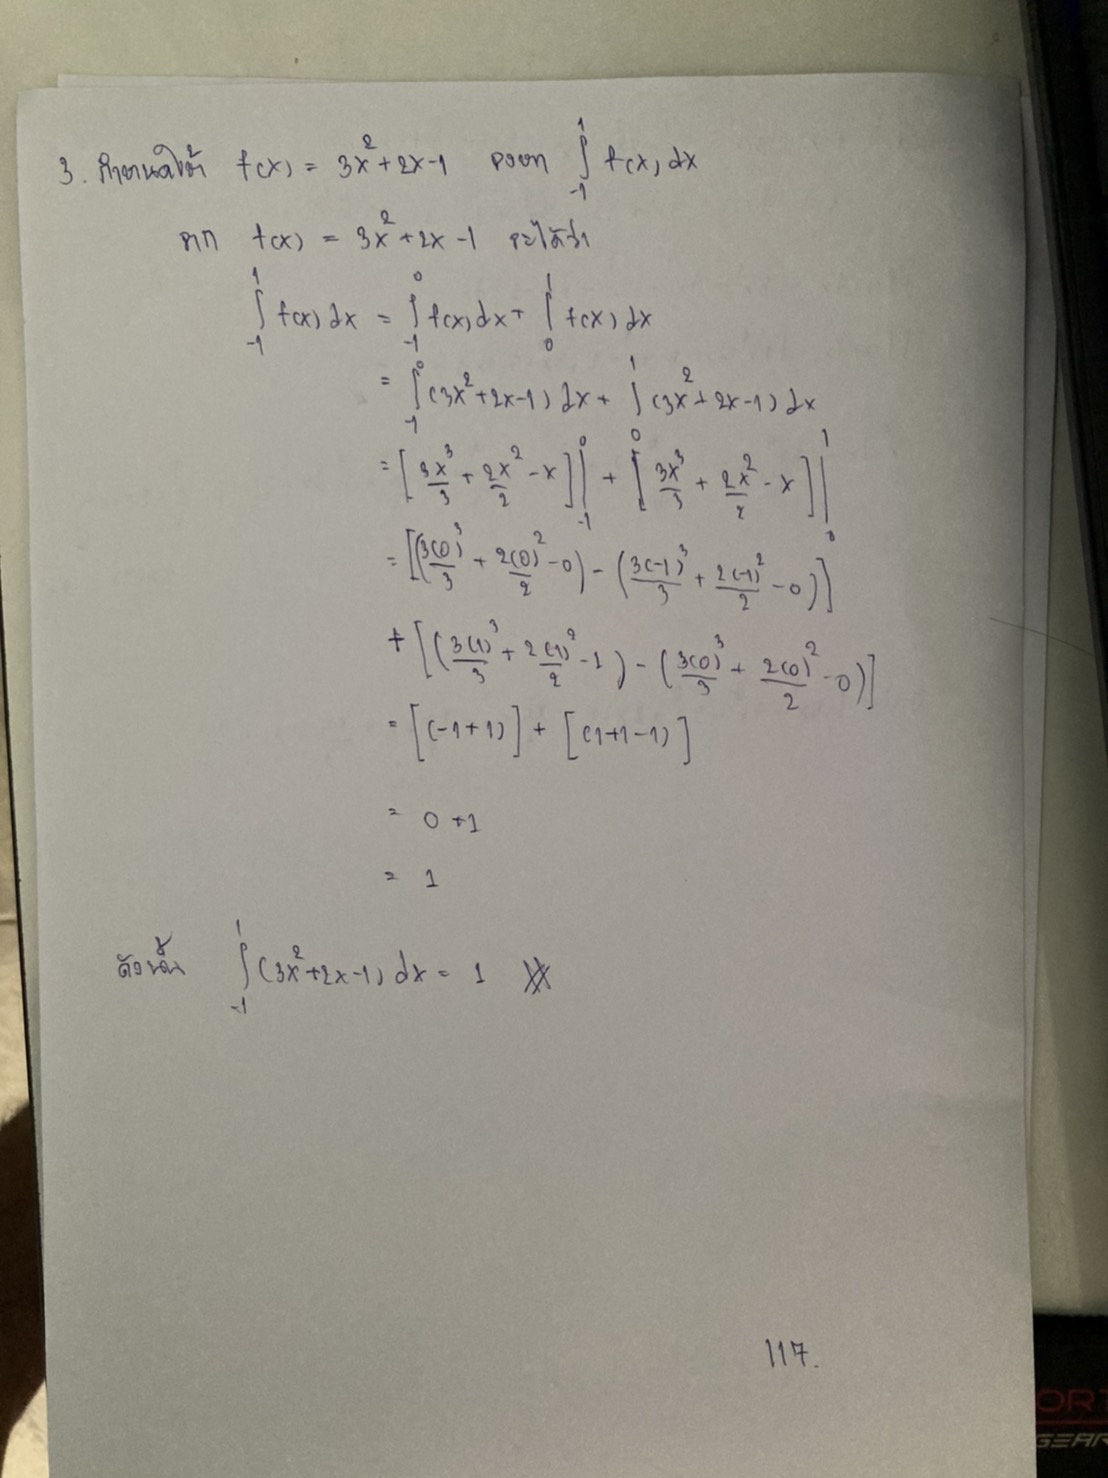 3. กำหนดให้ f(x) = 3x² + 2x - 1 จงหา ∫₋₁¹ f(x) dx
จาก f(x) = 3x² + 2x - 1 จะได้ว่า
∫₋₁¹ f(x) dx = ∫₋₁⁰ f(x) dx + ∫₀¹ f(x) dx
= ∫₋₁⁰ (3x² + 2x - 1) dx + ∫₀¹ (3x² + 2x - 1) dx
= [3x³/3 + 2x²/2 - x]|₋₁⁰ + [3x³/3 + 2x²/2 - x]|₀¹
= [(3(0)³/3 + 2(0)²/2 - 0) - (3(-1)³/3 + 2(-1)²/2 - 0)]
+ [(3(1)³/3 + 2(1)²/2 - 1) - (3(0)³/3 + 2(0)²/2 - 0)]
= [(-1+1)] + [(1+1-1)]
= 0 + 1
= 1
ดังนั้น ∫₋₁¹ (3x² + 2x - 1) dx = 1
117.
ORT
GEAR